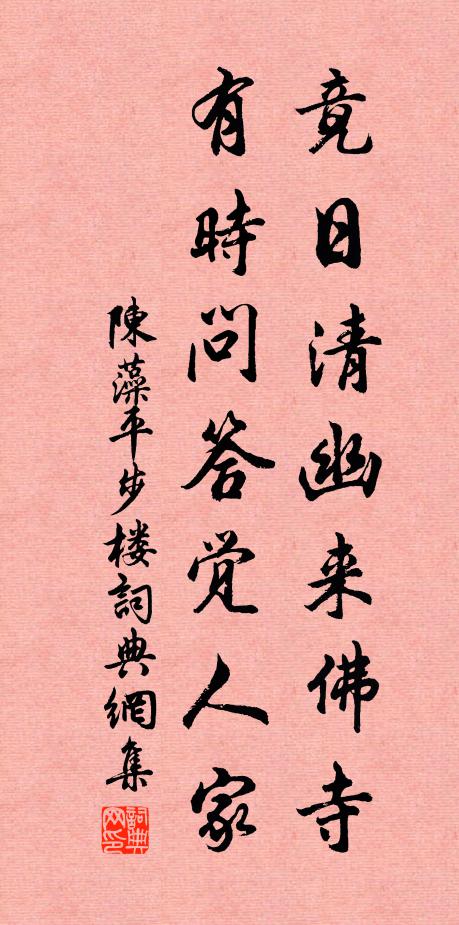 竟日清幽来佛寺
有時問答觉人家
陳藻平步楼詞典網集
詞典网印